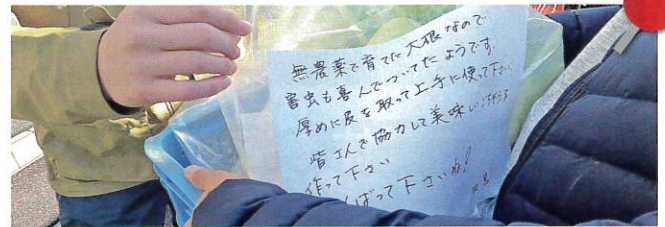 無農薬で育てた大根なので
害虫も喜んでついてたようです。
厚めに皮を取って上手に使って下さい
皆さんで協力して美味しい
作って下さい
んばって下さいね!